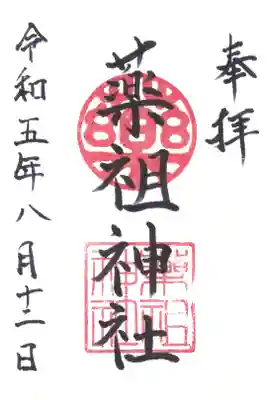 奉拝
薬祖神社
令和五年八月十二日
薬祖
神社